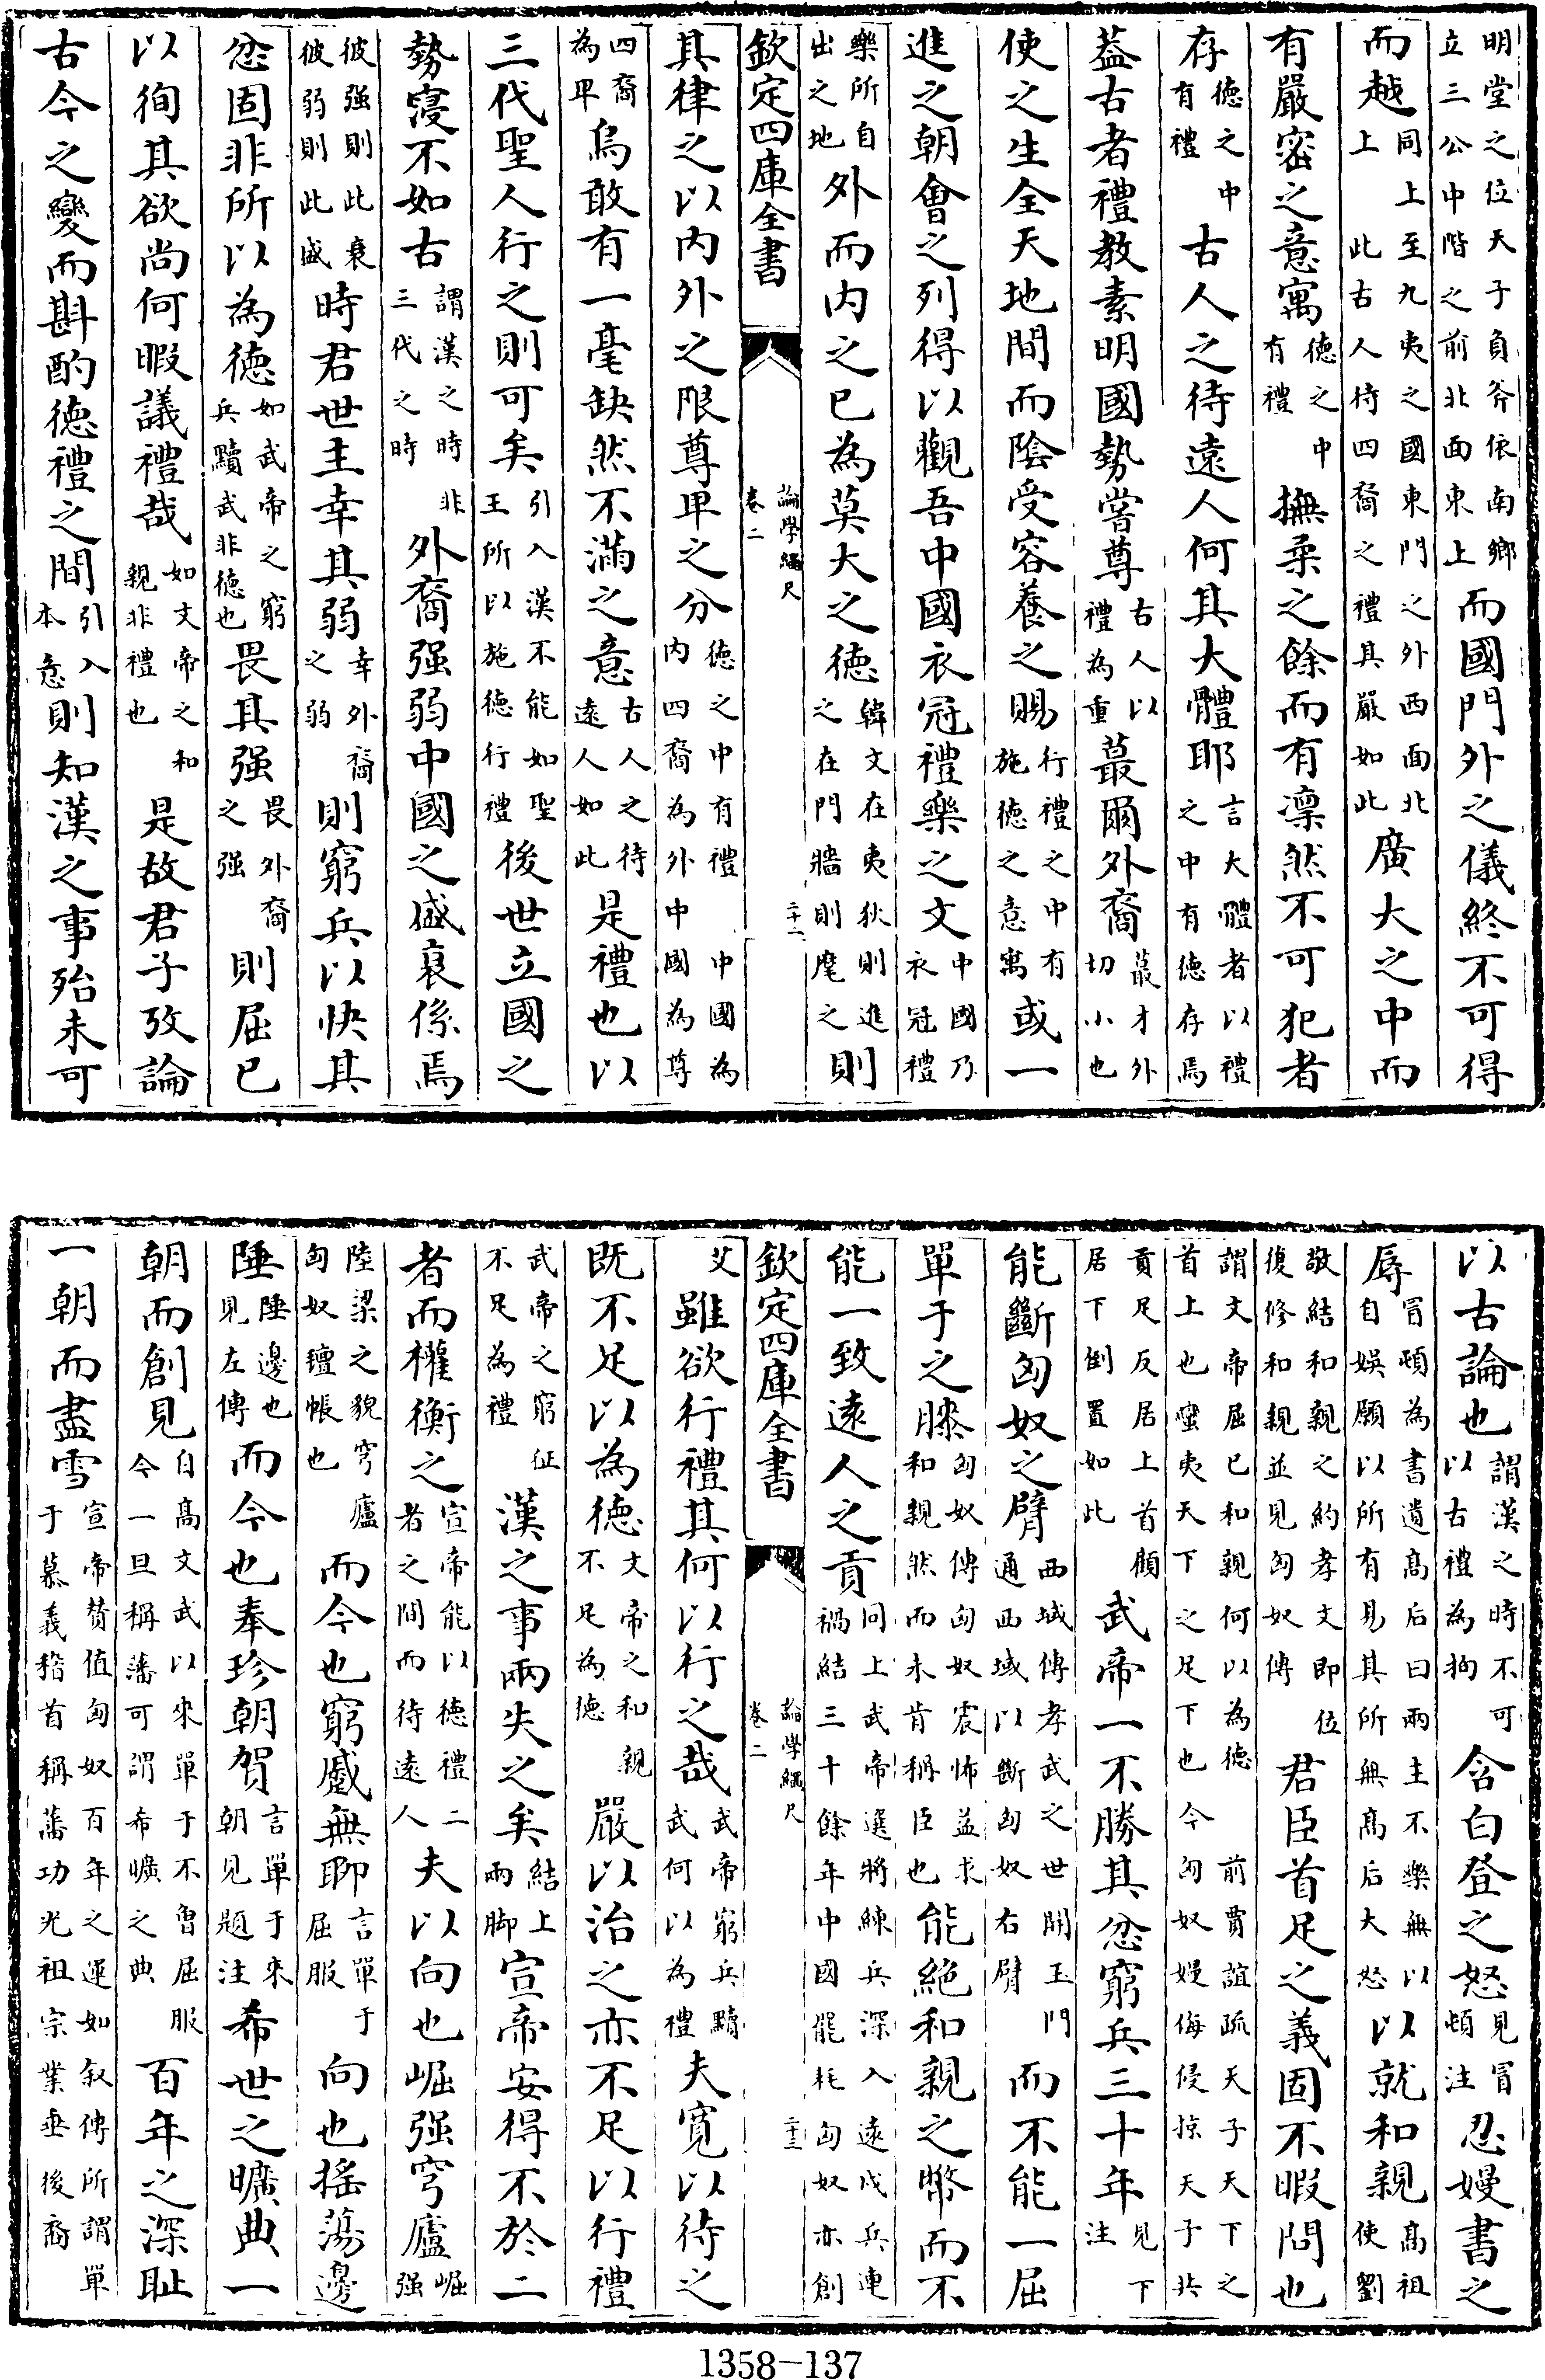 明堂之位天子負斧依南鄉立三公中階之前北面東上而國門外之儀終不可得
而越同上上至九夷之國東門之外西面北上此古人待四裔之禮其嚴如此廣大之中而
有嚴密之意寓德之中有禮撫柔之餘而有凜然不可犯者
存德之中有禮古人之待遠人何其大體耶言大體者以禮之中有德存焉
蓋古者禮教素明國勢嘗尊古人以禮為重蕞爾外裔蕞才外切小也
使之生全天地間而陰受容養之賜行禮之中有施德之意寓或一
進之朝會之列得以觀吾中國衣冠禮樂之文中國乃衣冠禮
樂所自出之地外而内之已為莫大之德韓文在夷狄則進之在門牆則麾之則
欽定四庫全書 論學繩尺 卷二 二十一
其律之以内外之限尊卑之分德之中有禮 中國為内四裔為外中國為尊
四裔為卑烏敢有一毫缺然不滿之意古人之待遠人如此是禮也以
三代聖人行之則可矣引入漢不能如聖王所以施德行禮後世立國之
勢寖不如古謂漢之時非三代之時外裔强弱中國之盛衰係焉
彼强則此衰彼弱則此盛時君世主幸其弱幸外裔之弱則窮兵以快其
忿固非所以為德如武帝之窮兵黷武非德也畏其强畏外裔之强則屈已
以徇其欲尚何暇議禮哉如文帝之和親非禮也是故君子攷論
古今之變而斟酌德禮之間引入本意則知漢之事殆未可
以古論也謂漢之時不可以古禮為拘含白登之怒見冒頓注忍嫚書之
辱冒頓為書遺髙后曰兩主不樂無以自娛願以所有易其所無髙后大怒以就和親髙祖使劉
敬結和親之約孝文即位復修和親並見匈奴傳君臣首足之義固不暇問也
謂文帝屈已和親何以為德 前賈誼疏天子天下之首上也蠻夷天下之足下也今匈奴嫚侮侵掠天子共
貢足反居上首顧居下倒置如此武帝一不勝其忿窮兵三十年見下注
能斷匈奴之臂西域傳孝武之世開玉門通西域以斷匈奴右臂而不能一屈
單于之膝匈奴傳匈奴震怖益求和親然而未肯稱臣也能絶和親之幣而不
能一致遠人之貢同上武帝選將練兵深入遠戍兵連禍結三十餘年中國罷耗匈奴亦創
欽定四庫全書 論學繩尺 卷二 二十二
艾雖欲行禮其何以行之哉武帝窮兵黷武何以為禮夫寛以待之
既不足以為德文帝之和親不足為德嚴以治之亦不足以行禮
武帝之窮征不足為禮漢之事兩失之矣結上兩脚宣帝安得不於二
者而權衡之宣帝能以德禮二者之間而待遠人夫以向也崛强穹廬崛强
陸梁之貌穹廬匈奴氊帳也而今也窮蹙無聊言單于屈服向也揺蕩邊
陲陲邊也見左傳而今也奉珍朝賀言單于來朝見題注希世之曠典一
朝而創見自髙文武以來單于不曾屈服今一旦稱藩可謂希曠之典百年之深恥
一朝而盡雪宣帝贊值匈奴百年之運如叙傳所謂單于慕義稽首稱藩功光祖宗業垂後裔
1358-137